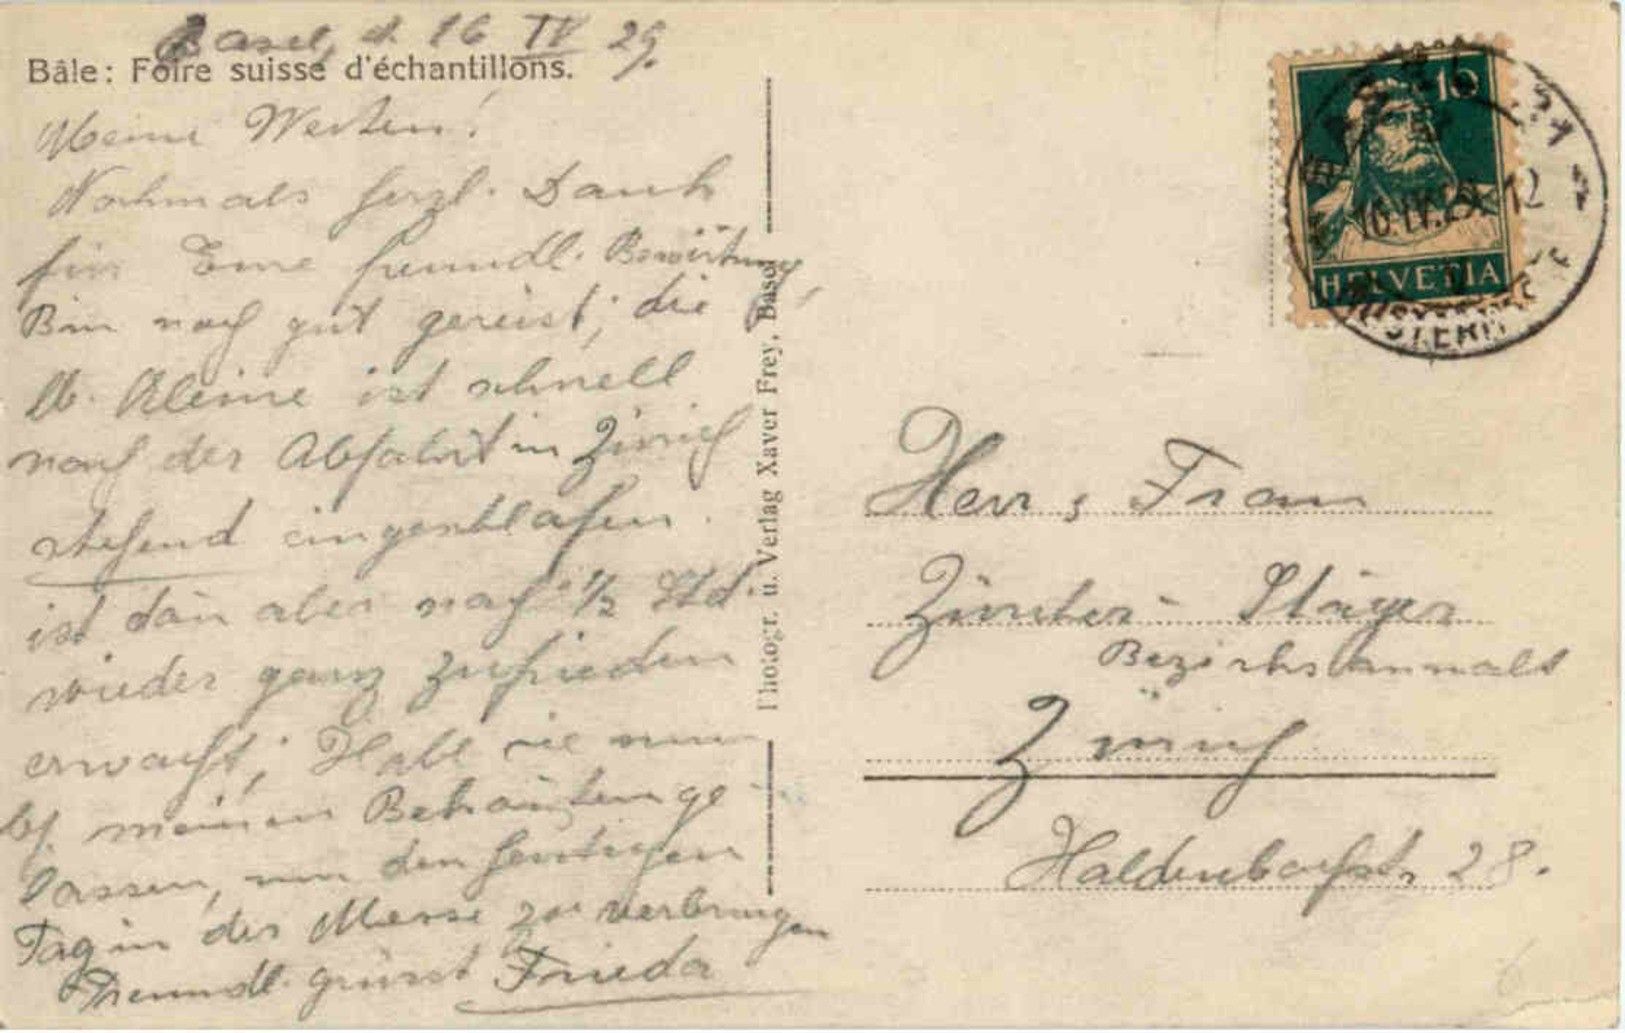 Basel, d. 16 IV 29.
Bâle: Foire suisse d'échantillons.
Meine Werten!
Nochmals herzl. Dank
für Eure freundl. Bewirtung,
Bin noch gut gereist; die
lb. Kleine ist schnell
nach der Abfahrt in Zürich
stehend eingeschlafen.
ist dan̄ aber nach 1/2 Std.
wieder ganz zufrieden
erwacht; Hab sie nun
bei meinen Bekannten ge-
lassen, um den heutigen
Tag in der Messe zu verbringen
Freundl. grüsst Frieda
Photogr. u. Verlag Xaver Frey, Basel
10
HELVETIA
IV.29.-12
Herr & Frau
Zürcher-Stäger
Bezirksanwalt
Zürich
Haldenbachstr. 28.